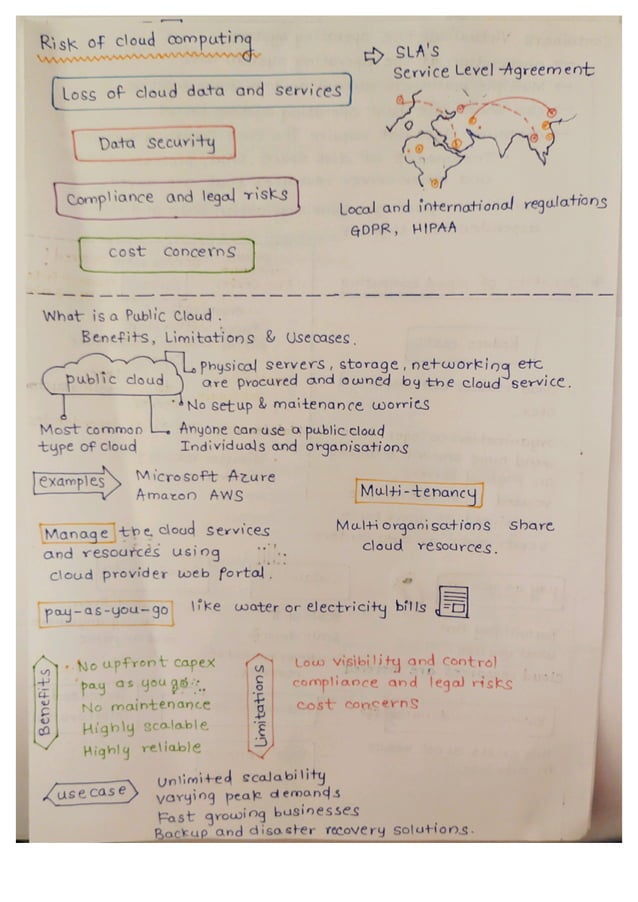 Risk of cloud computing
Loss of cloud data and services
Data security
Compliance and legal risks
cost concerns
SLA's
Service Level Agreement
Local and international regulations
GDPR, HIPAA
What is a Public Cloud.
Benefits, Limitations & Usecases.
public cloud
Physical servers, storage, networking etc
are procured and owned by the cloud service.
No setup & maitenance worries
Most common
type of cloud
Anyone can use a public cloud
Individuals and organisations
examples
Microsoft Azure
Amazon AWS
Multi-tenancy
Multi organisations share
cloud resources.
Manage the cloud services
and resources using
cloud provider web portal.
pay-as-you-go like water or electricity bills
Benefits
No upfront capex
pay as you go
No maintenance
Highly scalable
Highly reliable
Limitations
Low visibility and control
compliance and legal risks
cost concerns
use case
Unlimited scalability
varying peak demands
Fast growing businesses
Backup and disaster recovery solutions.